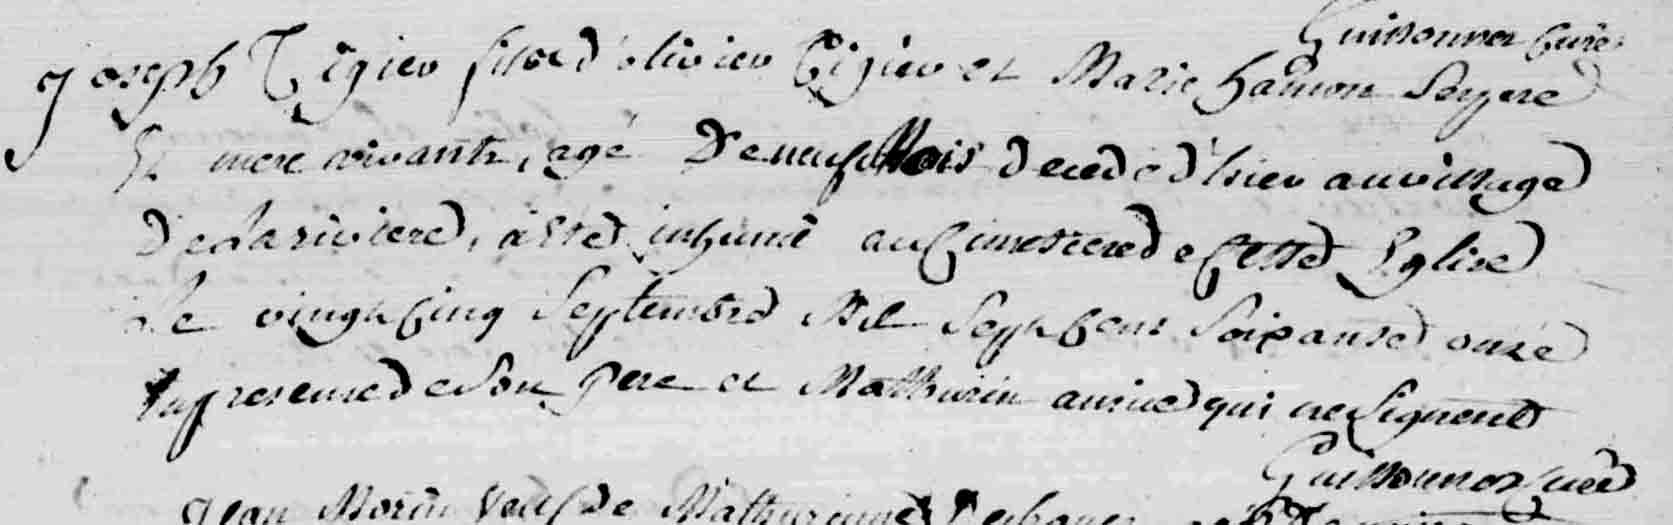 Guissonner Curé
Joseph Tigier fils d'olivier Tigier et Marie hamon Ses pere
Et mere vivants, agé De neuf Mois decedé d'hier au village
De la riviere, a esté inhumé au Cimetiere de Cette Eglise
Le vingt Cinq Septembre Mil Sept Cent Soixante onze
En presence de Son pere et Mathurin qui ne Signent
Guissonner Curé
Jean Morin veuf De Mathurinne